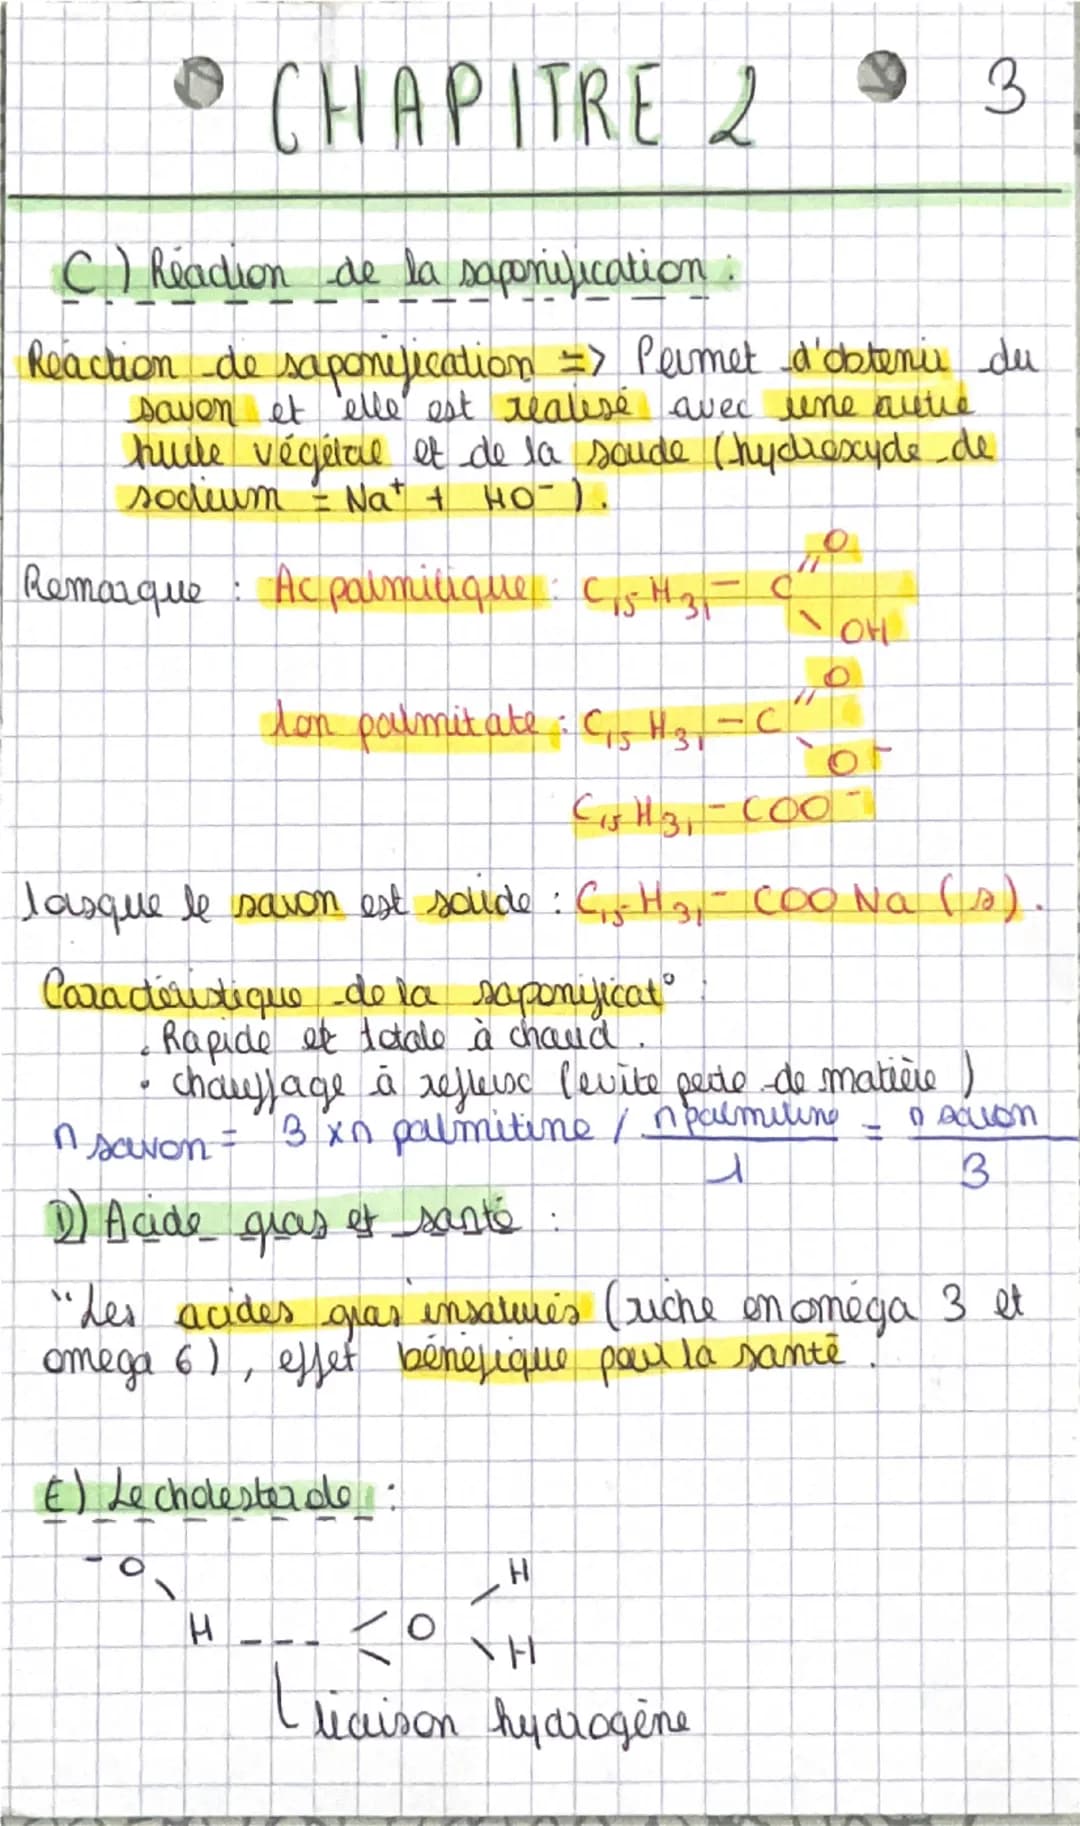 CHAPITRE 2 3
C) Réaction de la saponification :
Réaction de saponification => Permet d'obtenir du
savon et elle est réalisé avec une autre
huile végétale et de la soude (hydroxyde de
sodium = Na⁺ + HO⁻).
Remarque : Ac palmitique : C₁₅H₃₁ - C
O
OH
Ion palmitate : C₁₅H₃₁ - C
O
O⁻
C₁₅H₃₁ - COO⁻
lorsque le savon est solide : C₁₅H₃₁ - COO Na (s).
Caractéristique de la saponificat° :
. Rapide et totale à chaud.
. chauffage à reflux (évite perte de matière)
n savon = 3 x n palmitine / n palmitine / 1 = n savon / 3
D) Acide gras et santé :
"Les acides gras insaturés (riche en oméga 3 et
omega 6), effet bénéfique pour la santé.
E) Le cholesterole :
- O
H
H --- O
H
liaison hydrogène